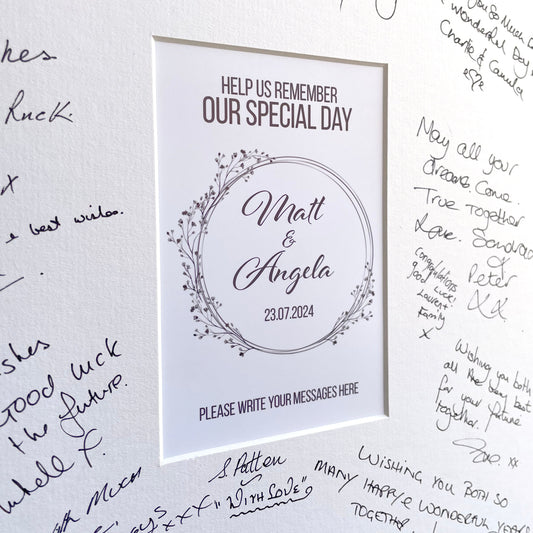 you So Much
Wonderful Day
Charlie & Camila
HELP US REMEMBER
OUR SPECIAL DAY
Matt
&
Angela
23.07.2024
PLEASE WRITE YOUR MESSAGES HERE
Ruck.
x
best wishes.
GOOD LUCK
the future.
x.
May all your
dreams come.
True Together
Love. Sandra
&
Peter
XX
Congratulations
good luck!
Family
x
Wishing you both
all the very best
for your future
together.
xx
S Patten
xxx "WITH LOVE"
WISHING YOU BOTH SO
MANY HAPPY & WONDERFUL YEARS
TOGETHER!